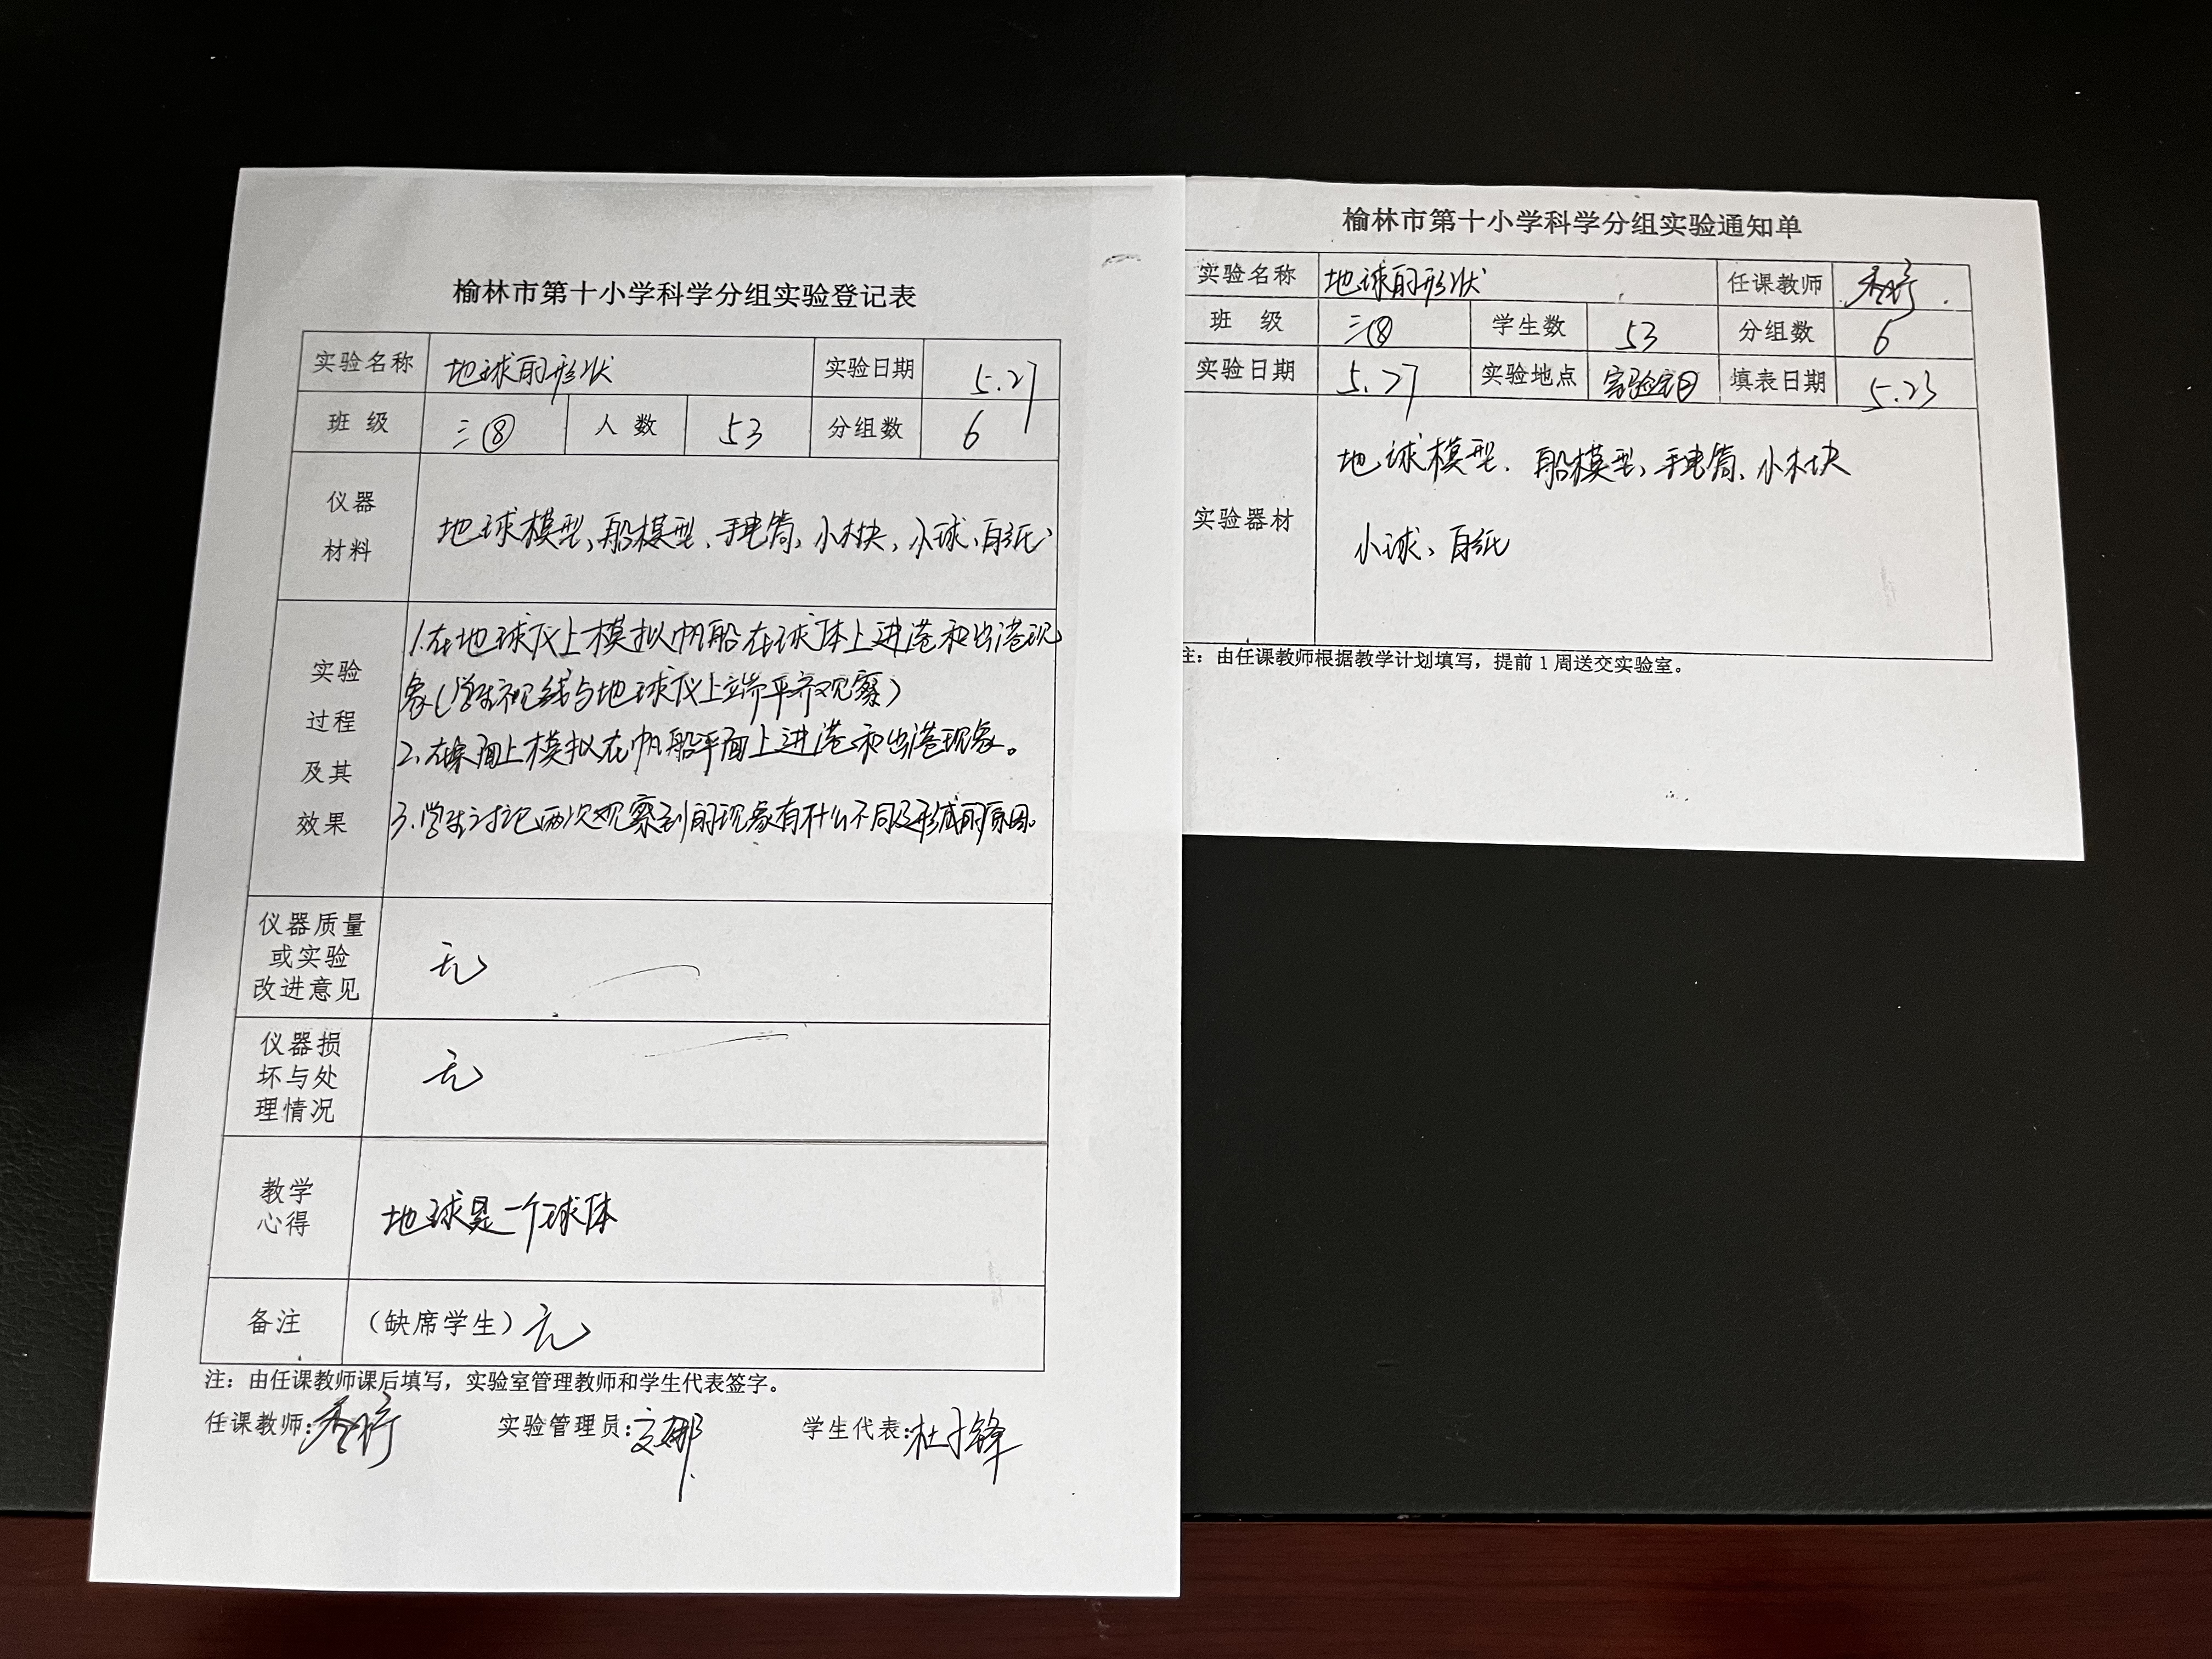 榆林市第十小学科学分组实验登记表
实验名称 地球的形状 实验日期 5.27
班级 三⑧ 人数 53 分组数 6
仪器
材料
地球模型、船模型、手电筒、小木块、小球、白纸、
实验
过程
及其
效果
1.在地球仪上模拟帆船在球体上进港和出港现
象(学生视线与地球仪上端平齐观察)
2.在桌面上模拟在帆船平面上进港和出港现象。
3.学生讨论两次观察到的现象有什么不同及形成的原因。
仪器质量
或实验
改进意见
无
仪器损
坏与处
理情况
无
教学
心得
地球是一个球体
备注 (缺席学生) 无
注：由任课教师课后填写，实验室管理教师和学生代表签字。
任课教师: 实验管理员: 学生代表:
榆林市第十小学科学分组实验通知单
实验名称 地球的形状 任课教师
班 级 三⑧ 学生数 53 分组数 6
实验日期 5.27 实验地点 实验室 填表日期 5.23
实验器材
地球模型、船模型、手电筒、小木块
小球、白纸
注：由任课教师根据教学计划填写，提前1周送交实验室。